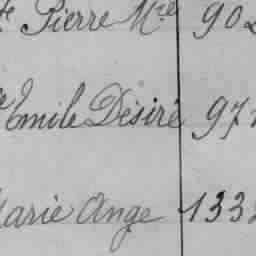 Pierre Mre 90
Emile Désiré 97
Marie Ange 133